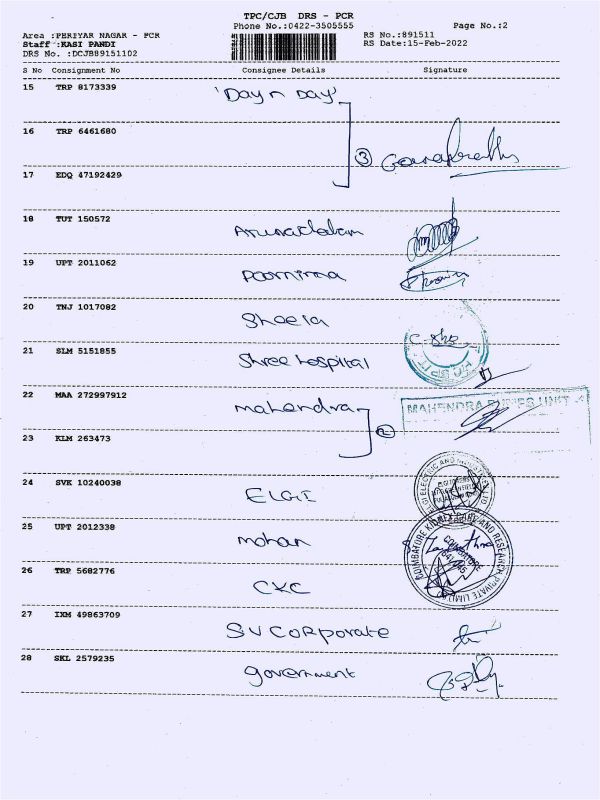 TPC/CJB DRS - PCR
Phone No.:0422-3505555 Page No.:2
Area :PERIYAR NAGAR - PCR RS No.:891511
Staff :KASI PANDI RS Date:15-Feb-2022
DRS No. :DCJB89151102
S No Consignment No Consignee Details Signature
15 TRP 8173339 'Day n Day'
16 TRP 6461680
③
17 EDQ 47192429
18 TUT 150572 Arunachalam
19 UPT 2011062 Poornima
20 TNJ 1017082 Sheela
21 SLM 5151855 Shree hospital
22 MAA 272997912 mahendra
MAHENDRA PUMPS UNIT - 4
23 KLM 263473 ②
24 SVK 10240038 ELGI
25 UPT 2012338 mohan
COIMBATORE KIDNEY CARE AND RESEARCH PRIVATE LIMITED
COIMBATORE
26 TRP 5682776 CKC
27 IXM 49863709 SV CORPorate
28 SKL 2579235 government